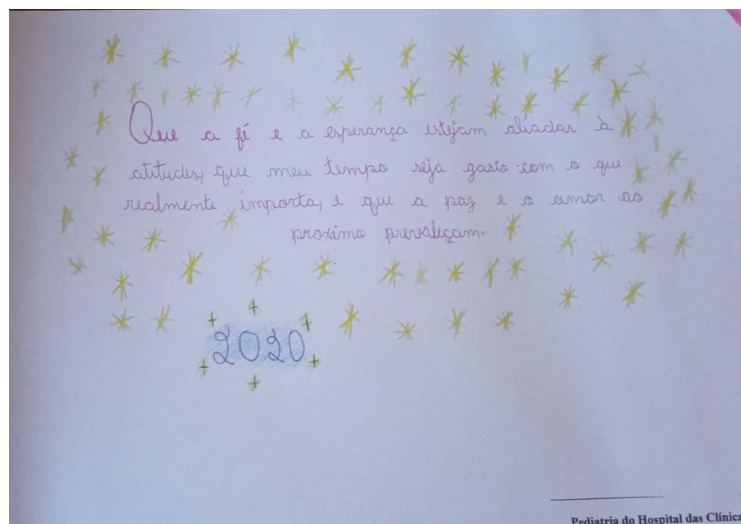 Que a fé e a esperança estejam aliadas à
atitudes, que meu tempo seja gasto com o que
realmente importa, e que a paz e o amor ao
proximo prevaleçam.
2020
Pediatria do Hospital das Clínica